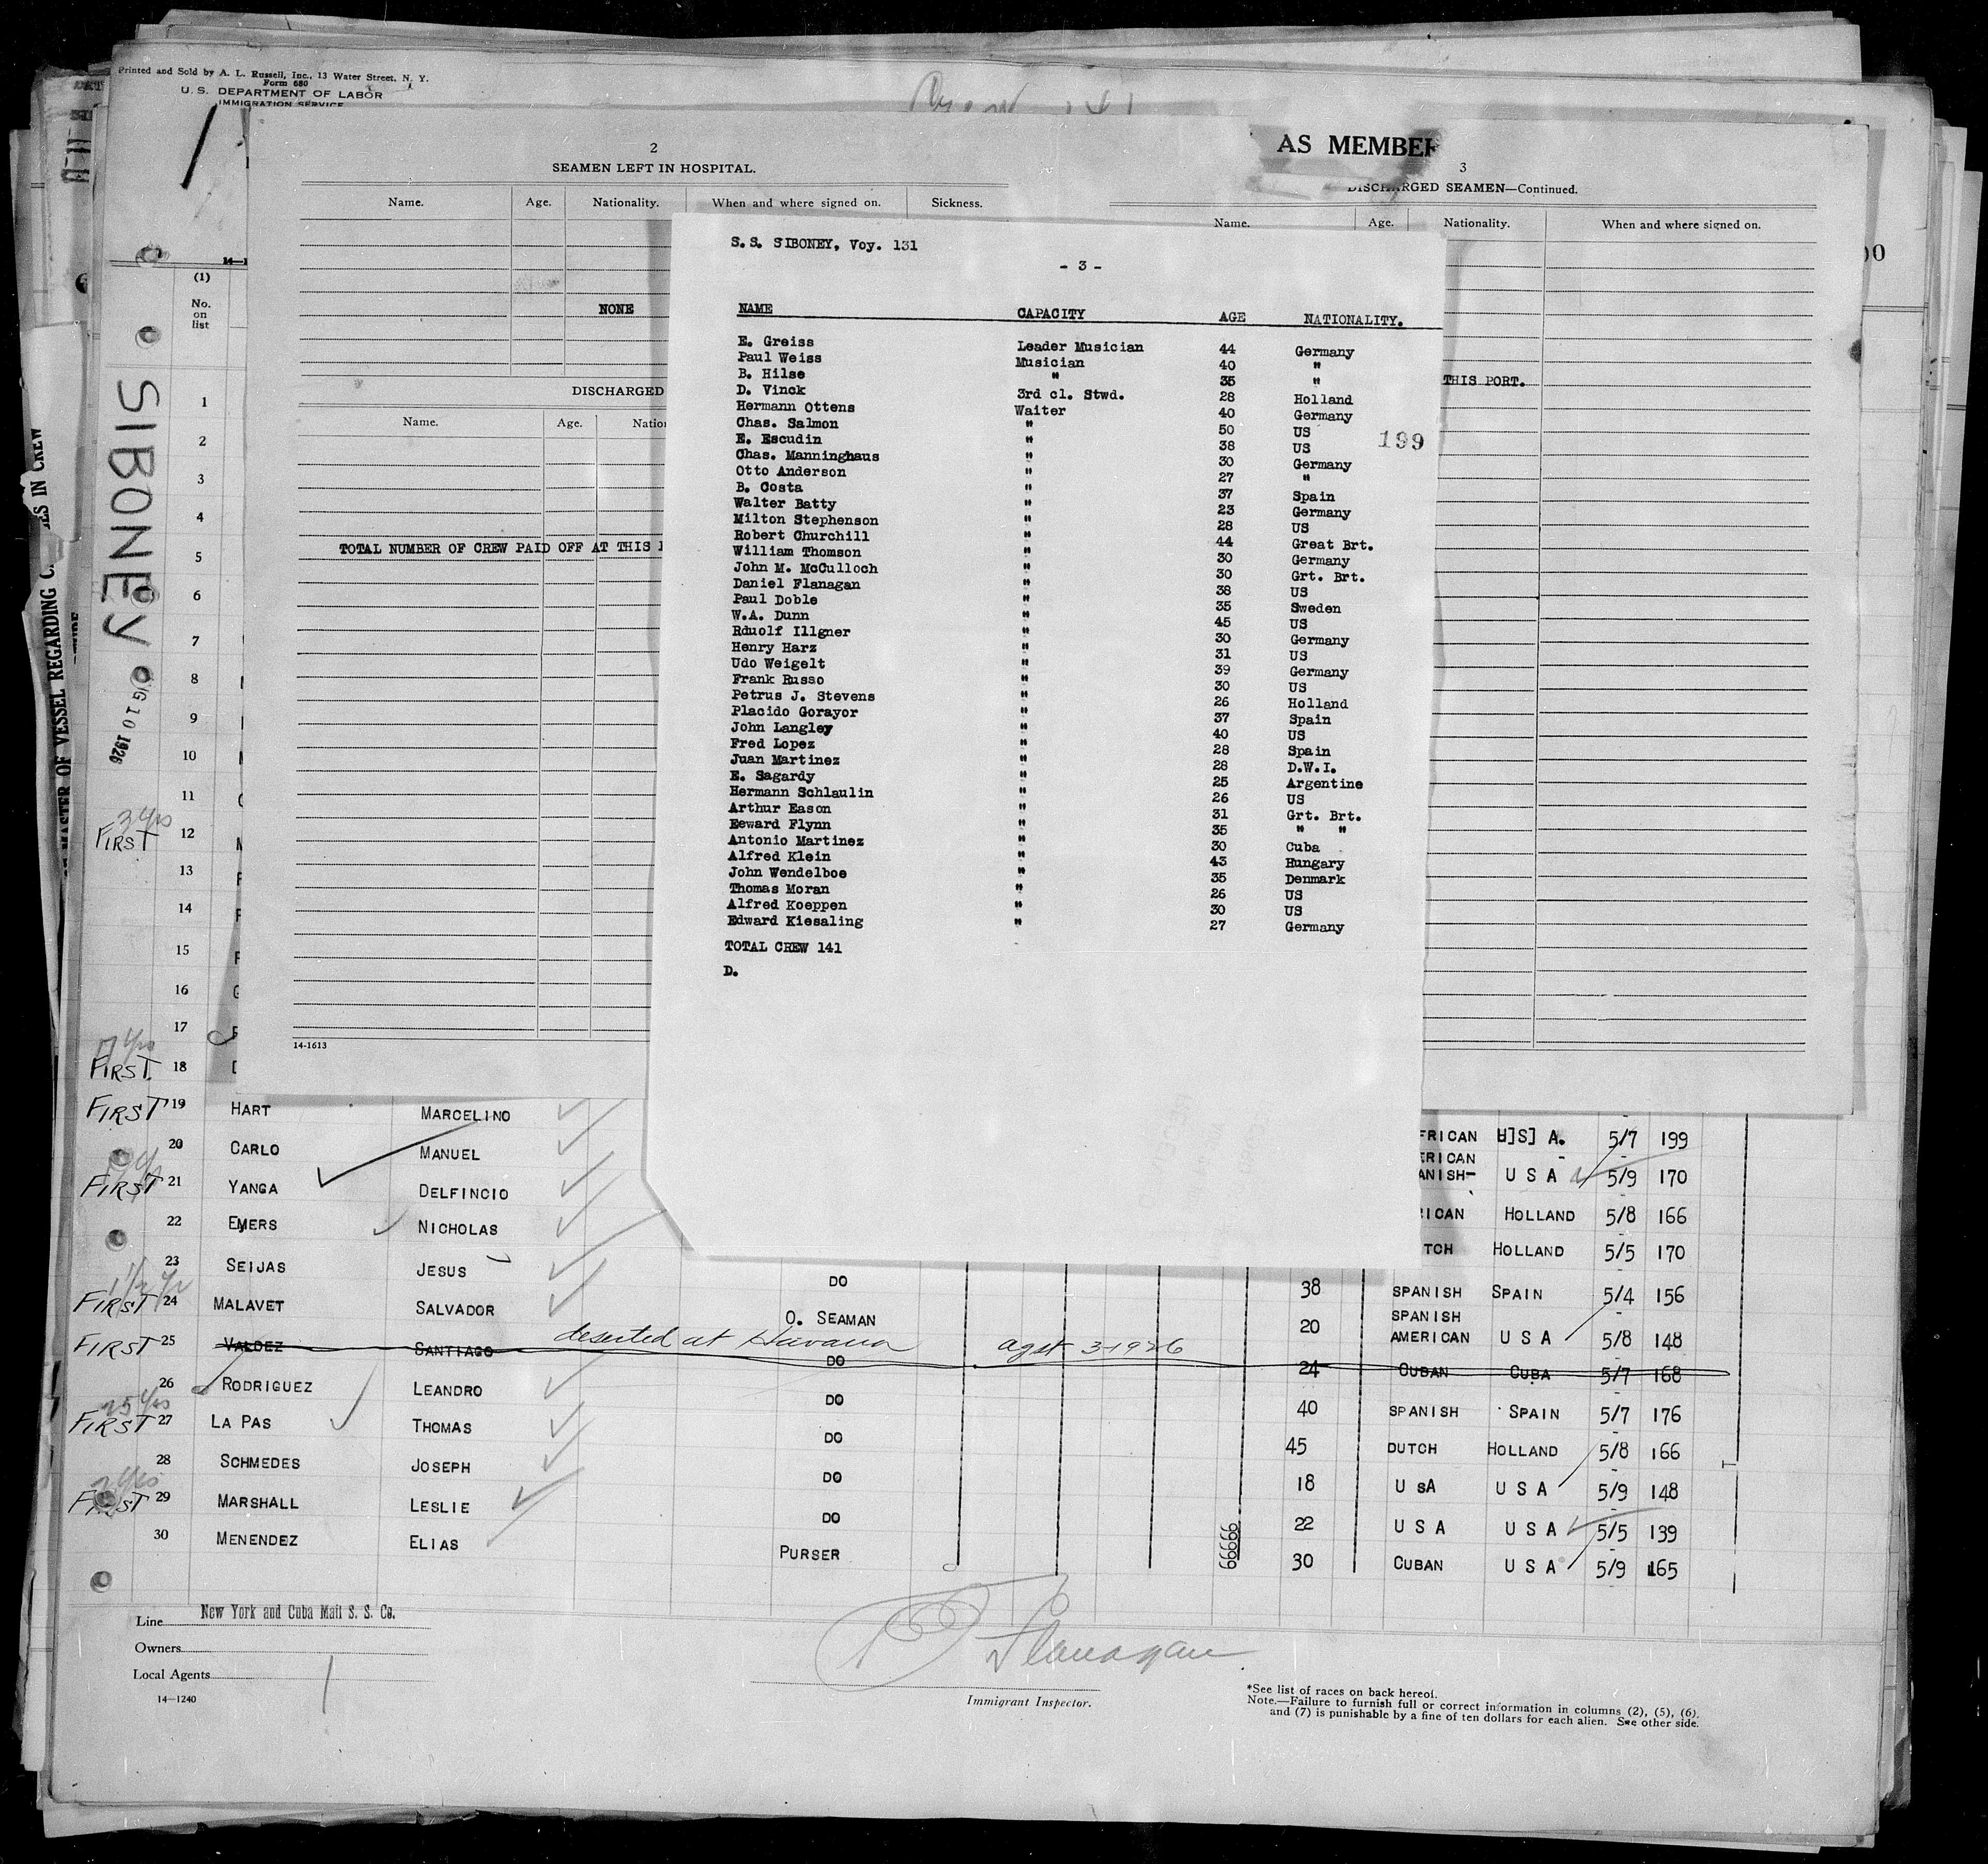 Printed and Sold by A. L. Russell, Inc., 13 Water Street, N. Y.
Form 680
U. S. DEPARTMENT OF LABOR
IMMIGRATION SERVICE
(1)
No.
on
list
SIBONEY
10 1926
MASTER OF VESSEL REGARDING
IN CREW
2
SEAMEN LEFT IN HOSPITAL.
Name. Age. Nationality. When and where signed on. Sickness.
NONE
DISCHARGED
Name. Age. Natio
TOTAL NUMBER OF CREW PAID OFF AT THIS
14-1613
AS MEMBER
3
DISCHARGED SEAMEN—Continued.
Name. Age. Nationality. When and where signed on.
THIS PORT.
S.S. SIBONEY, Voy. 131
- 3 -
NAME CAPACITY AGE NATIONALITY.
E. Greiss Leader Musician 44 Germany
Paul Weiss Musician 40 "
B. Hilse " 35 "
D. Vinck 3rd cl. Stwd. 28 Holland
Hermann Ottens Waiter 40 Germany
Chas. Salmon " 50 US
199
E. Escudin " 38 US
Chas. Manninghaus " 30 Germany
Otto Anderson " 27 "
B. Costa " 37 Spain
Walter Batty " 23 Germany
Milton Stephenson " 28 US
Robert Churchill " 44 Great Brt.
William Thomson " 30 Germany
John M. McCulloch " 30 Grt. Brt.
Daniel Flanagan " 38 US
Paul Doble " 35 Sweden
W.A. Dunn " 45 US
Rduolf Illgner " 30 Germany
Henry Harz " 31 US
Udo Weigelt " 39 Germany
Frank Russo " 30 US
Petrus J. Stevens " 26 Holland
Placido Gorayor " 37 Spain
John Langley " 40 US
Fred Lopez " 28 Spain
Juan Martinez " 28 D.W.I.
E. Sagardy " 25 Argentine
Hermann Schlaulin " 26 US
Arthur Eason " 31 Grt. Brt.
Eeward Flynn " 35 " "
Antonio Martinez " 30 Cuba
Alfred Klein " 43 Hungary
John Wendelboe " 35 Denmark
Thomas Moran " 26 US
Alfred Koeppen " 30 US
Edward Kiesaling " 27 Germany
TOTAL CREW 141
D.
1
2
3
4
5
6
7
8
9
10
11
3 Yrs
FIRST 12
13
14
15
16
17
FIRST. 18
FIRST 19 HART MARCELINO
20 CARLO MANUEL FRICAN U]S] A. 5/7 199
FIRST 21 YANGA DELFINCIO ERICAN ANISH- U S A 5/9 170
22 EMERS NICHOLAS ICAN HOLLAND 5/8 166
23 SEIJAS JESUS TCH HOLLAND 5/5 170
DO 38 SPANISH SPAIN 5/4 156
FIRST 24 MALAVET SALVADOR O. SEAMAN 20 SPANISH AMERICAN U S A 5/8 148
deserted at Havana agst 3-1926
FIRST 25 VALDEZ SANTIAGO DO 24 CUBAN CUBA 5/7 168
26 RODRIGUEZ LEANDRO DO 40 SPANISH SPAIN 5/7 176
25 Yrs
FIRST 27 LA PAS THOMAS DO 45 DUTCH HOLLAND 5/8 166
28 SCHMEDES JOSEPH DO 18 U SA U S A 5/9 148
FIRST 29 MARSHALL LESLIE DO 22 U S A U S A 5/5 139
30 MENENDEZ ELIAS PURSER 30 CUBAN U S A 5/9 165
66666
Line New York and Cuba Mail S. S. Co.
Owners
Local Agents
14—1240
Flanagan
Immigrant Inspector.
*See list of races on back hereof.
Note.—Failure to furnish full or correct information in columns (2), (5), (6),
and (7) is punishable by a fine of ten dollars for each alien. See other side.